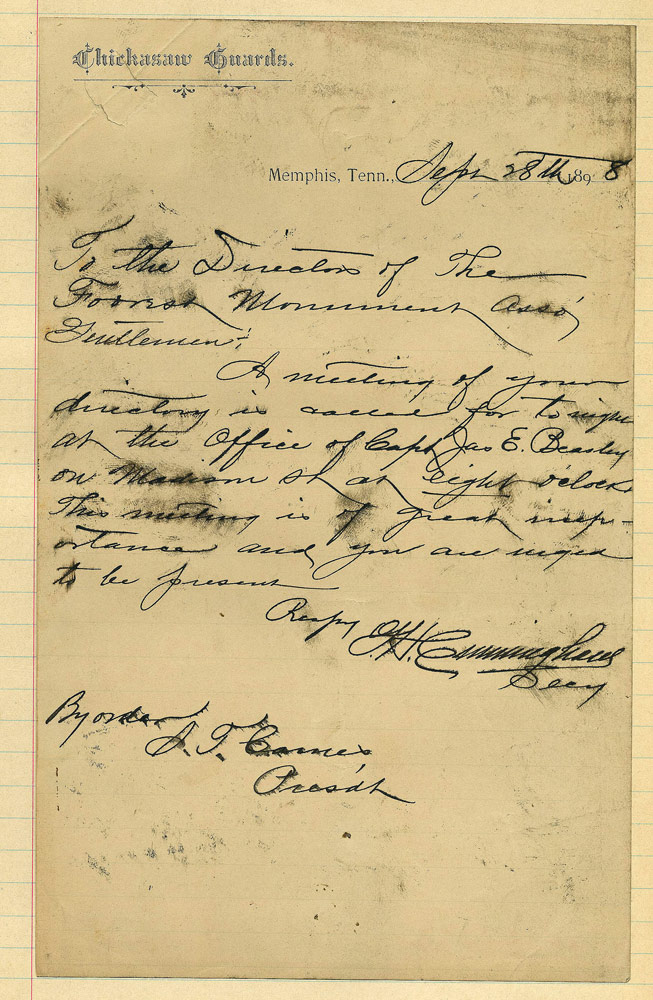 Chickasaw Guards.
Memphis, Tenn., Sept 28th 1898
To the Directors of The
Forrest Monument Asso,
Gentlemen:
A meeting of your
directory is called for to night
at the Office of Capt Jas E. Beasley
on Madison St at eight oclock
This meeting is of great imp-
ortance and you are urged
to be present
Respy H. Cunningham
Secy
By order
S. T. Carnes
Presdt